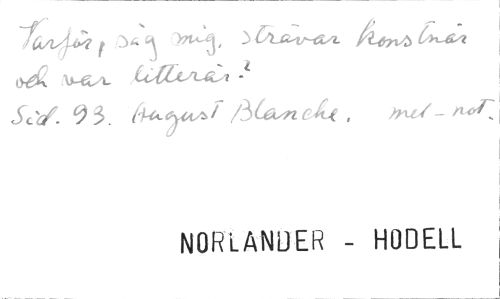 Varför, säg mig, strävar konstnär
och var litterär?
Sid. 93. August Blanche. mel-not.
NORLANDER - HODELL